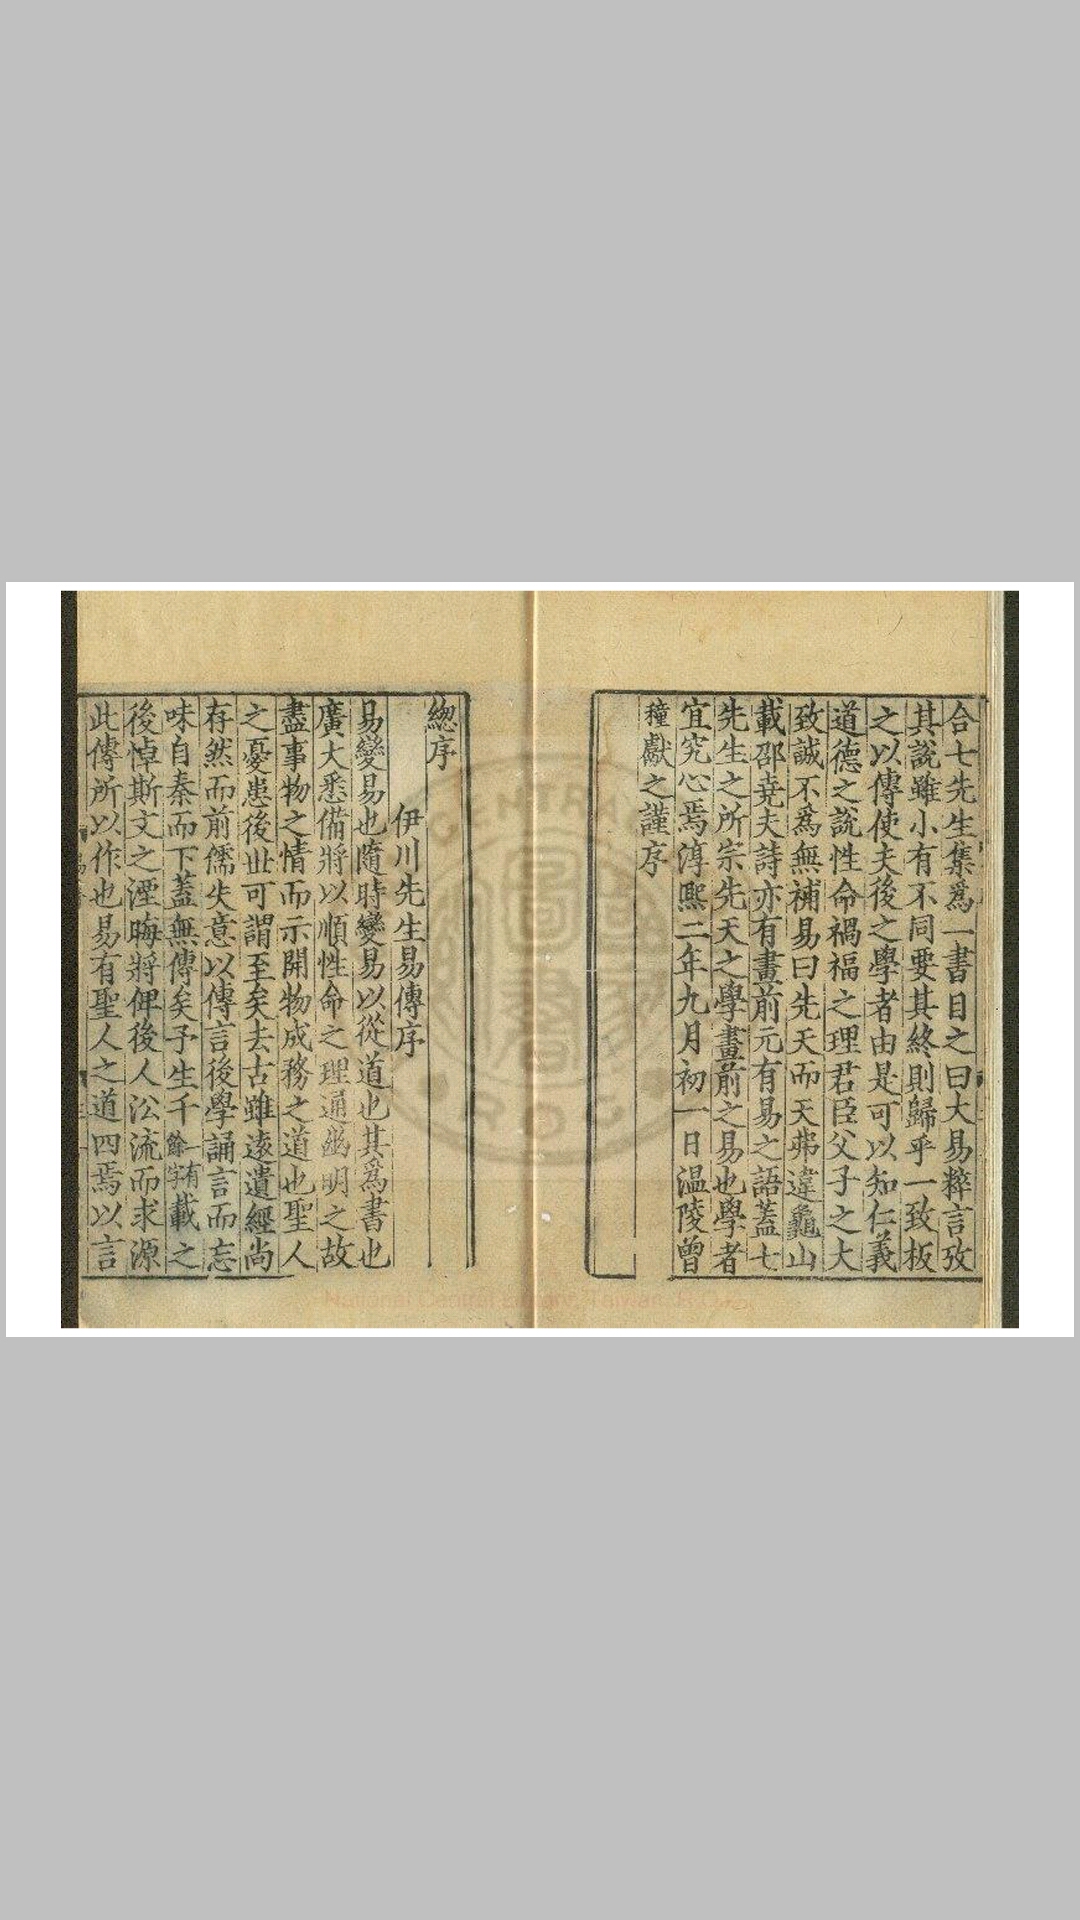 合七先生集爲一書目之曰大易粹言攷
其說雖小有不同要其終則歸乎一致板
之以傳使夫後之學者由是可以知仁義
道德之說性命禍福之理君臣父子之大
致誠不爲無補易曰先天而天弗違龜山
載邵堯夫詩亦有畫前元有易之語蓋七
先生之所宗先天之學畫前之易也學者
宜究心焉淳熙二年九月初一日温陵曾
穜獻之謹序
緫序
伊川先生易傳序
易變易也隨時變易以從道也其爲書也
廣大悉備將以順性命之理通幽明之故
盡事物之情而示開物成務之道也聖人
之憂患後世可謂至矣去古雖遠遺經尚
存然而前儒失意以傳言後學誦言而忘
味自秦而下蓋無傳矣予生千餘字一有載之
後悼斯文之湮晦將俾後人㳂流而求源
此傳所以作也易有聖人之道四焉以言
National Central Library, Taiwan (R.O.C.)